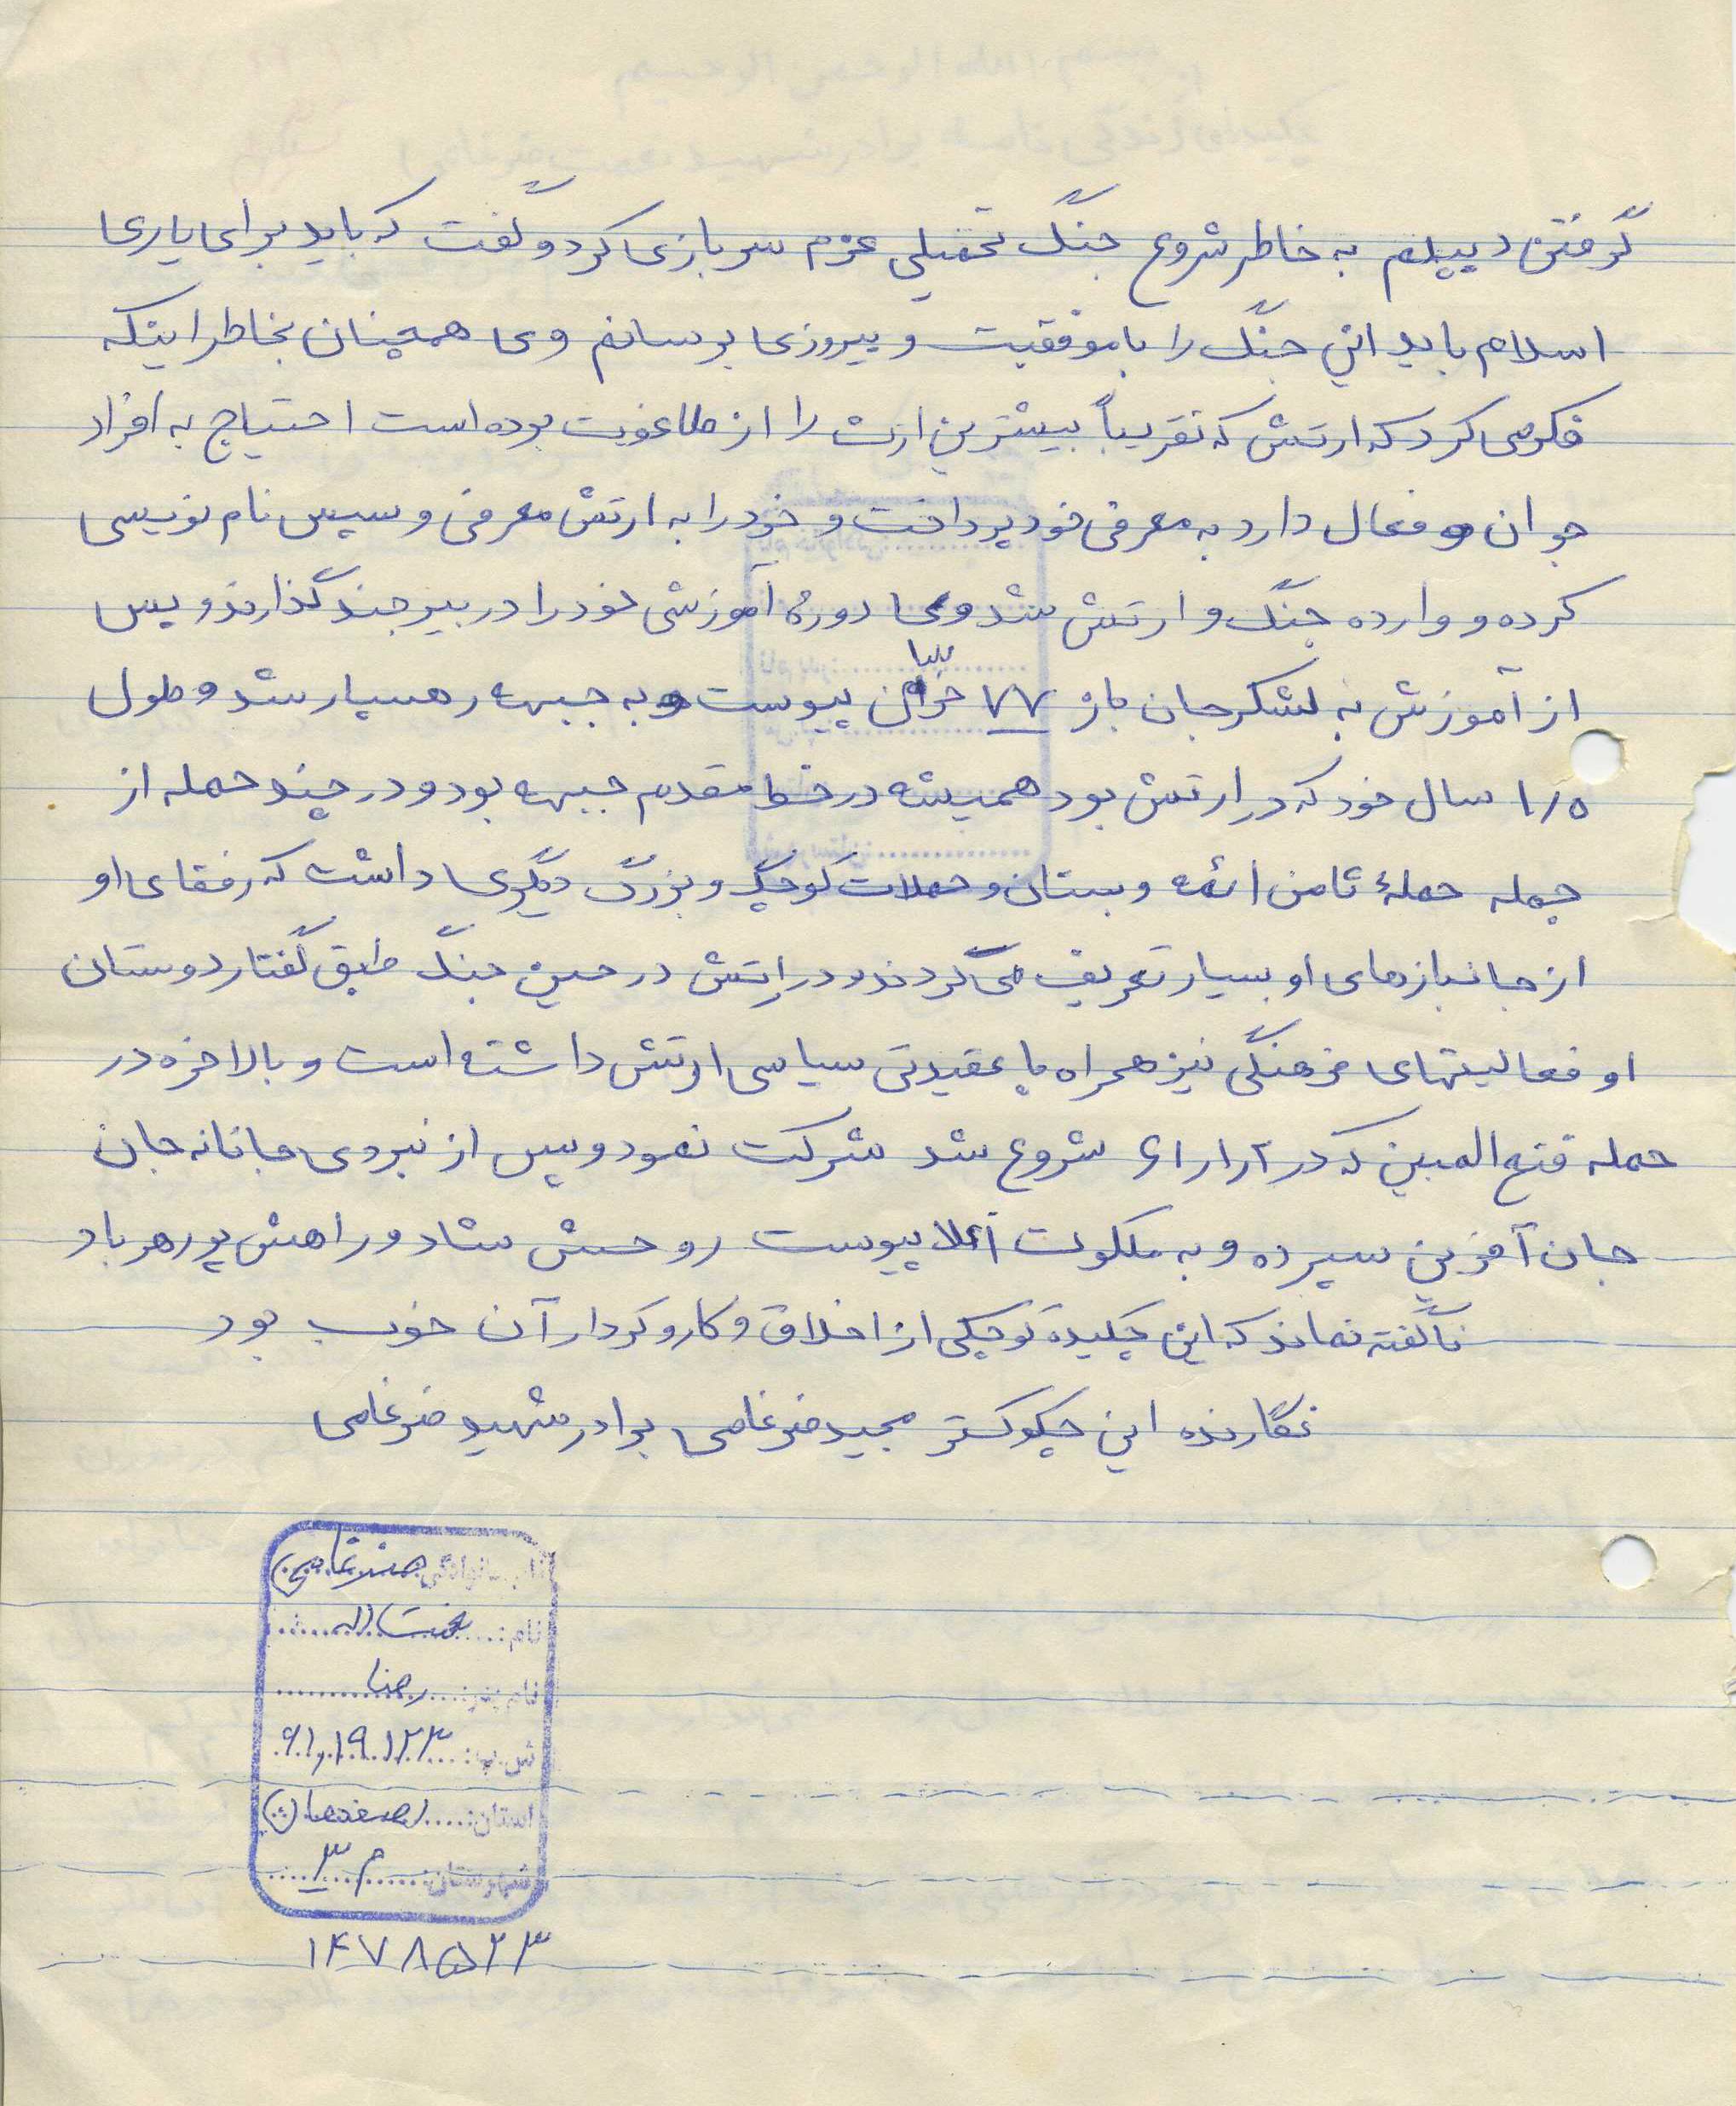 گرفتن دیپلم به خاطر شروع جنگ تحمیلی عزم سربازی کرد و گفت که باید برای یاری
اسلام باید این جنگ را با موفقیت و پیروزی برسانم وی همچنان بخاطر اینکه
فکر می کرد که ارتش که تقریباً بیشترین ارث را از طاغوت بوده است احتیاج به افراد
جوان و فعال دارد به معرفی خود پرداخت و خود را به ارتش معرفی و سپس نام نویسی
کرده و وارده جنگ و ارتش شد وی دورهٔ آموزشی خود را در بیرجند گذارند و پس
از آموزش به لشکر جان باز ۷۷ خراسان پیوست و به جبهه رهسپار شد و طول
۱/۵ سال خود که در ارتش بود همیشه در خط مقدم جبهه بود و در چند حمله از
جمله حملهٔ ثامن ائمه و بستان و حملات کوچک و بزرگ دیگری داشت که رفقای او
از جانبازهای او بسیار تعریف می کردند و در ارتش در حین جنگ طبق گفتار دوستان
او فعالیتهای فرهنگی نیز همراه با عقیدتی سیاسی ارتش داشته است و بالاخره در
حمله فتح المبین که در ۲/۱/۶۱ شروع شد شرکت نمود و پس از نبردی جانانه جان
جان آفرین سپرده و به ملکوت اعلا پیوست روحش شاد و راهش پر رهرو باد
ناگفته نماند که این چکیده کوچکی از اخلاق و کار و کردار آن خوب بود
نگارنده این چکوکتر مجید ضرغامی برادر شهید ضرغامی
نام خانوادگی ضرغامی
نام: نعمت اله
نام پدر: رضا
ش.پ: ۶۱٫۱۹٫۱۲۳
استان: اصفهان
شهرستان: م ۳
۱۴۷۸۵۲۳